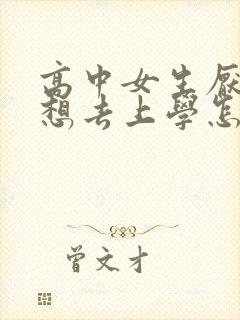 高中女生厭
想去上學怎
曾文才